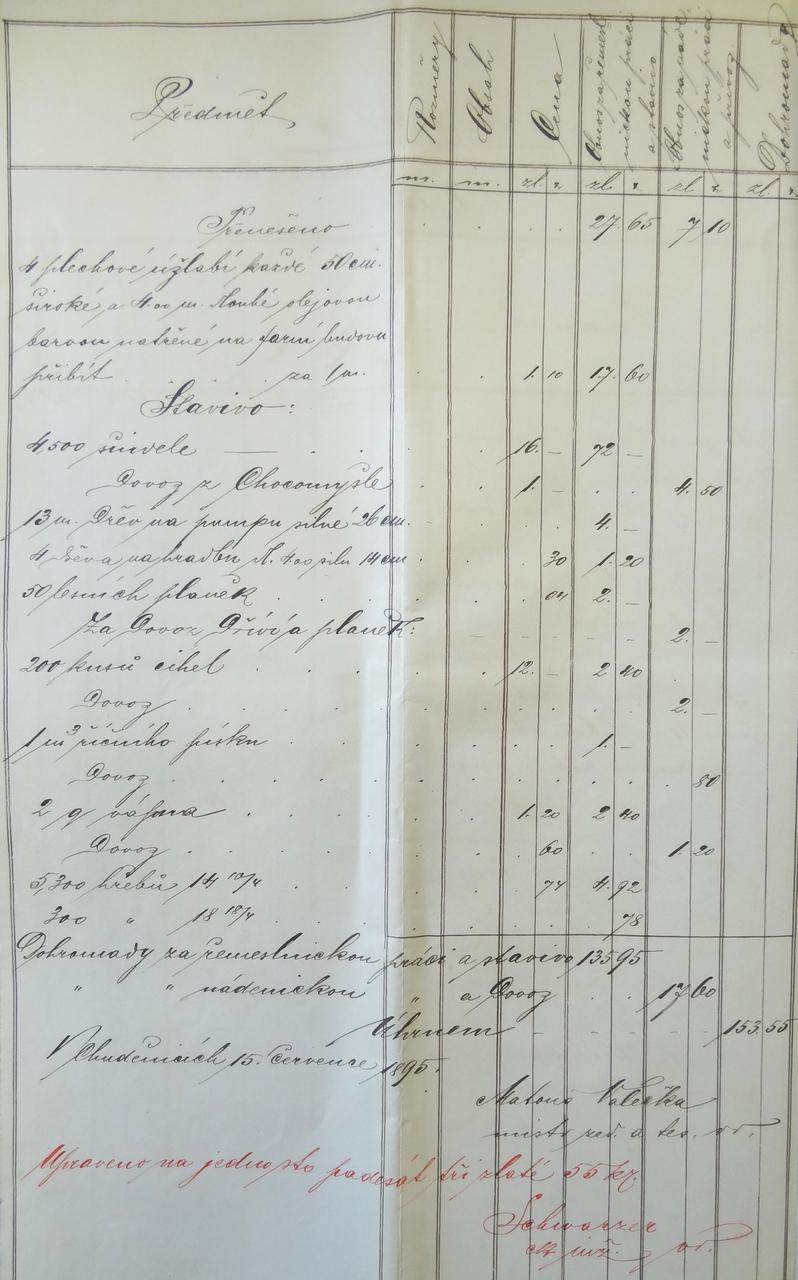 Předmět Rozměry Obsah Cena Obnos za řemeslnickou práci a stavivo Obnos za nádenickou práci a přívoz Dohromady
m. m. zl. kr. zl. kr. zl. kr. zl. kr.
Přenešeno 27. 65 7 10
4 plechové úžlabí každé 50 cm.
široké a 4.00 m. dlouhé olejovou
barvou natřené na farní budovu
přibít za 1 m. 1. 10 17. 60
Stavivo:
4,500 šindele — 16. — 72 —
Dovoz z Chocomyšle 1. — 4. 50
13 m. Dřev na pumpu silné 26 cm. 4. —
4 Dřeva na hradbu dl. 4.00 silu 14 cm 30 1. 20
50 lesních planěk 04 2. —
Za Dovoz Dříví a planěk: 2. —
200 kusů cihel 12. — 2 40
Dovoz 2. —
1 m³ říčního písku 1. —
Dovoz 80
2 q vápna 1. 20 2 40
Dovoz 60 1. 20
5,300 hřebů 14 10/4 74 4. 92
300 " 18 18/4 78
Dohromady za řemeslnickou práci a stavivo 135 95
" " nádenickou " a Dovoz 17 60
Úhrnem 153. 55
V Chudenicích, 15. července 1895.
Matouš Valečka
mistr zed. a tes.
Upraveno na jedno sto padesát tři zlaté 55 kr.
Schwarzer
inž.